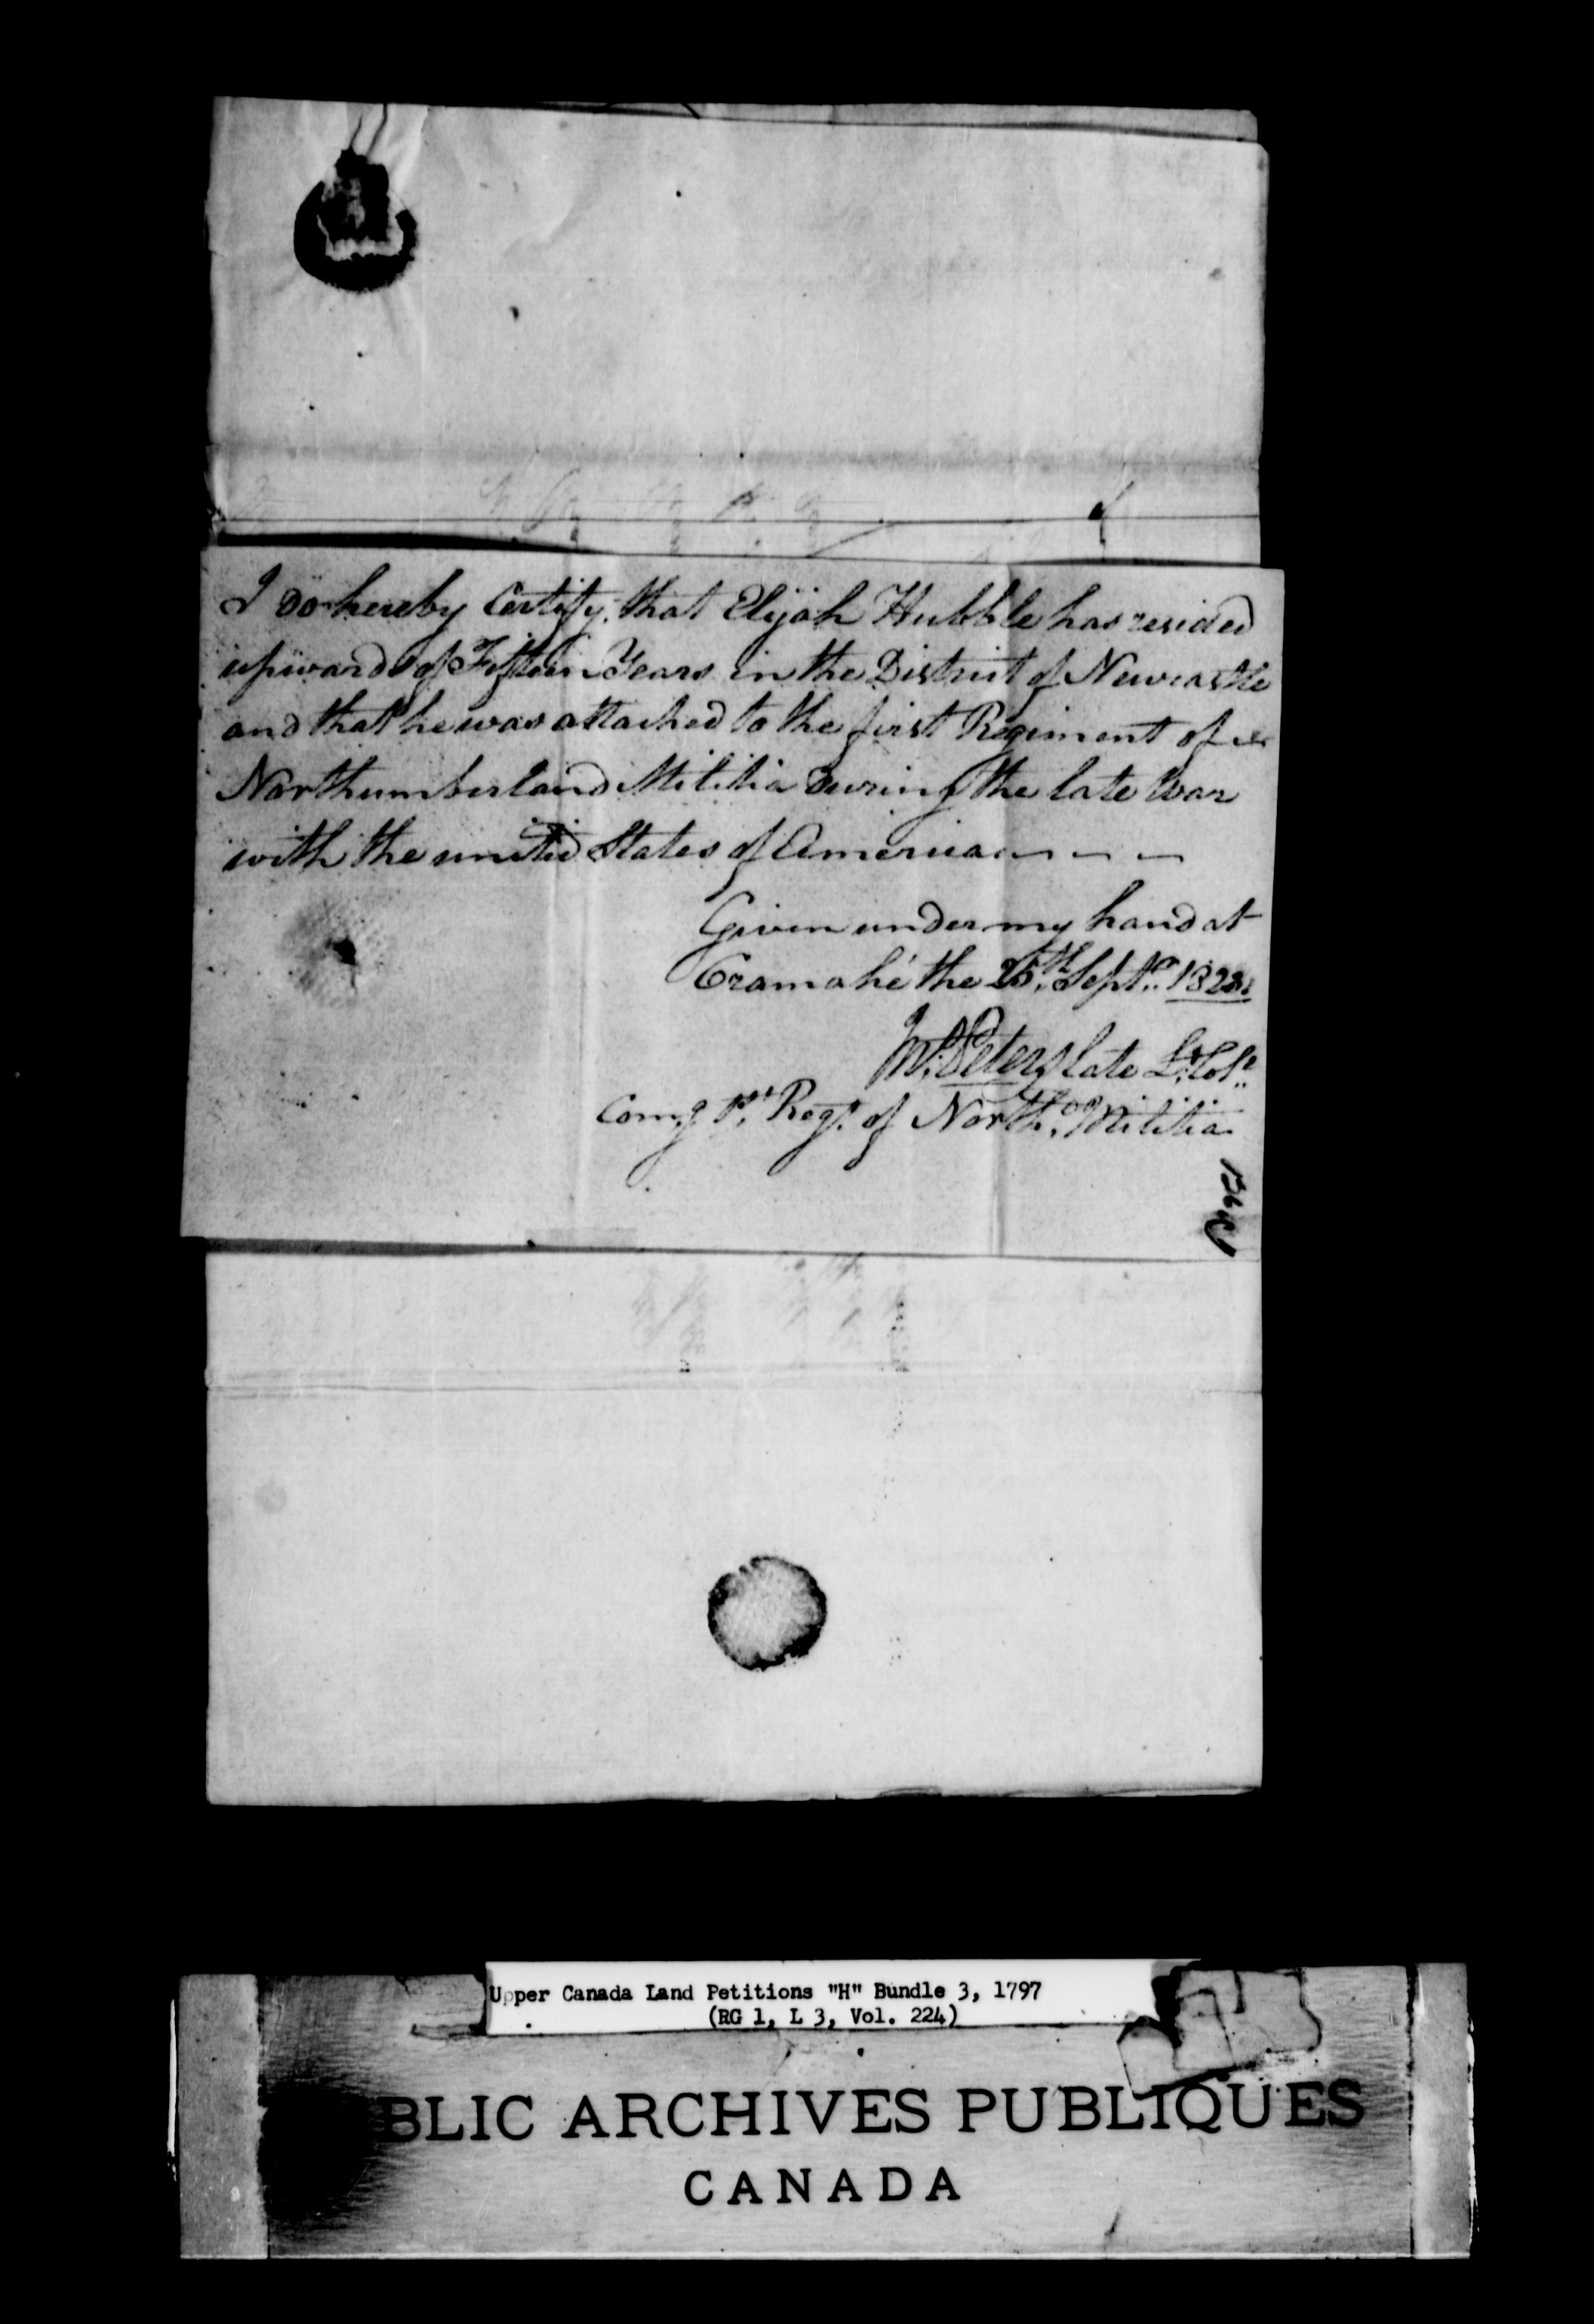 I do hereby Certify, that Elijah Hubble has resided
upwards of Fifteen Years in the District of Newcastle
and that he was attached to the first Regiment of
Northumberland Militia during the late War
with the united States of America
Given under my hand at
Cramahé the 26th Septr. 1820
Peters late Lt. Col.
Comg 1st. Regt. of North. Militia
126
Upper Canada Land Petitions "H" Bundle 3, 1797
(RG 1, L 3, Vol. 224)
BLIC ARCHIVES PUBLIQUES
CANADA